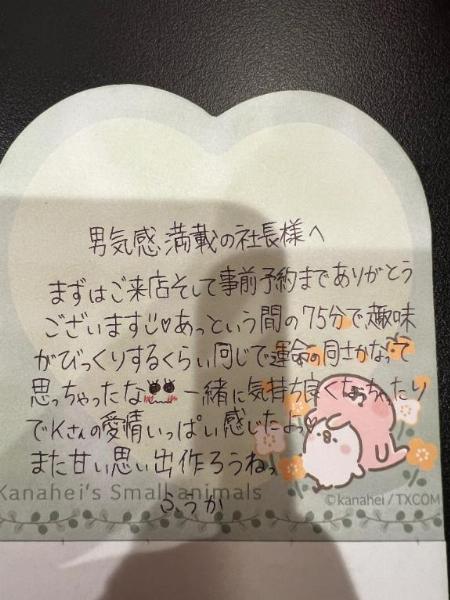 男気感満載の社長様へ
まずはご来店そして事前予約までありがとう
ございます♡あっという間の75分で趣味
がびっくりするくらい同じで運命の同士かなって
思っちゃったな 一緒に気持ち良くなっちゃったり
でKさんの愛情いっぱい感じたよっ♡
また甘い思い出作ろうねっ
Kanahei's Small animals
©kanahei/TXCOM
ふうか